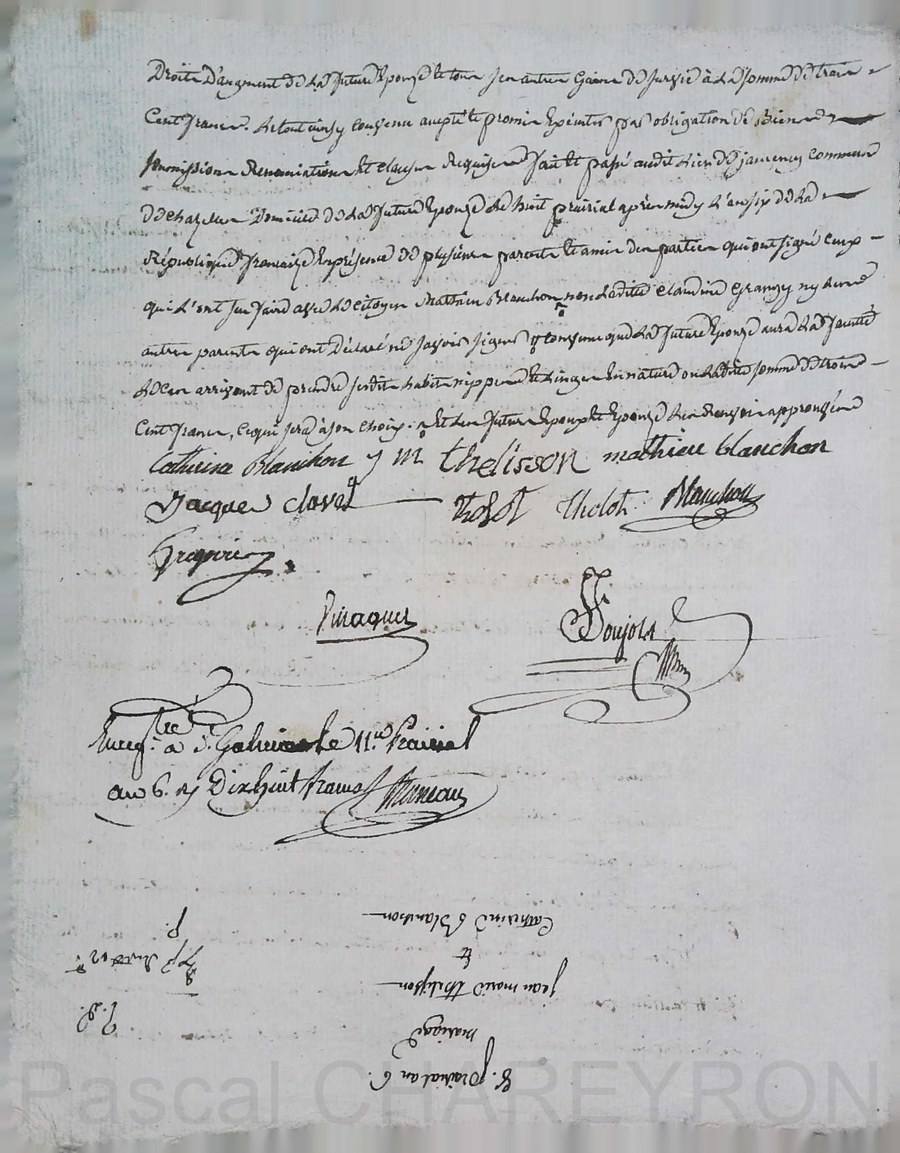 Droits d'augment de la future Épouze le tour en autres Gains de survie à la somme de trois
Cent francs. Le tout ainsy convenu accepté et promis Exécuter par obligation de Biens
soumissions Renonciations et clauses Requises fait et passé audit lieu de commune
de Chazelles Domicile de la future Épouze le huit prairial après midy L'an six de la
République française En présence de plusieurs parents et amis des parties qui ont signé ceux
qui L'ont sçu faire avec le citoyen Mathieu Blanchon non ladite Claudine Grangy ny les
autres parents qui ont Déclaré ne sçavoir signer convenu que la future Épouze aura la faculté
le cas arrivant de prendre sesdits habits nippes et linges En nature ou ladite somme de trois
Cent francs, ce qui sera à son choix. Et les futurs Époux et Épouze Les Renvois approuvés
Catherine Blanchon J M thelisson mathieu blanchon
Jacques Clavel Tholot Tholot Blanchon
Grégoire
Piraquet
Soujols
Enregtré à St Galmier le 11 Prairial
an 6. Dix huit francs
8. prairial an 6.
mariage
jean marie thelisson
&
Catherine Blanchon